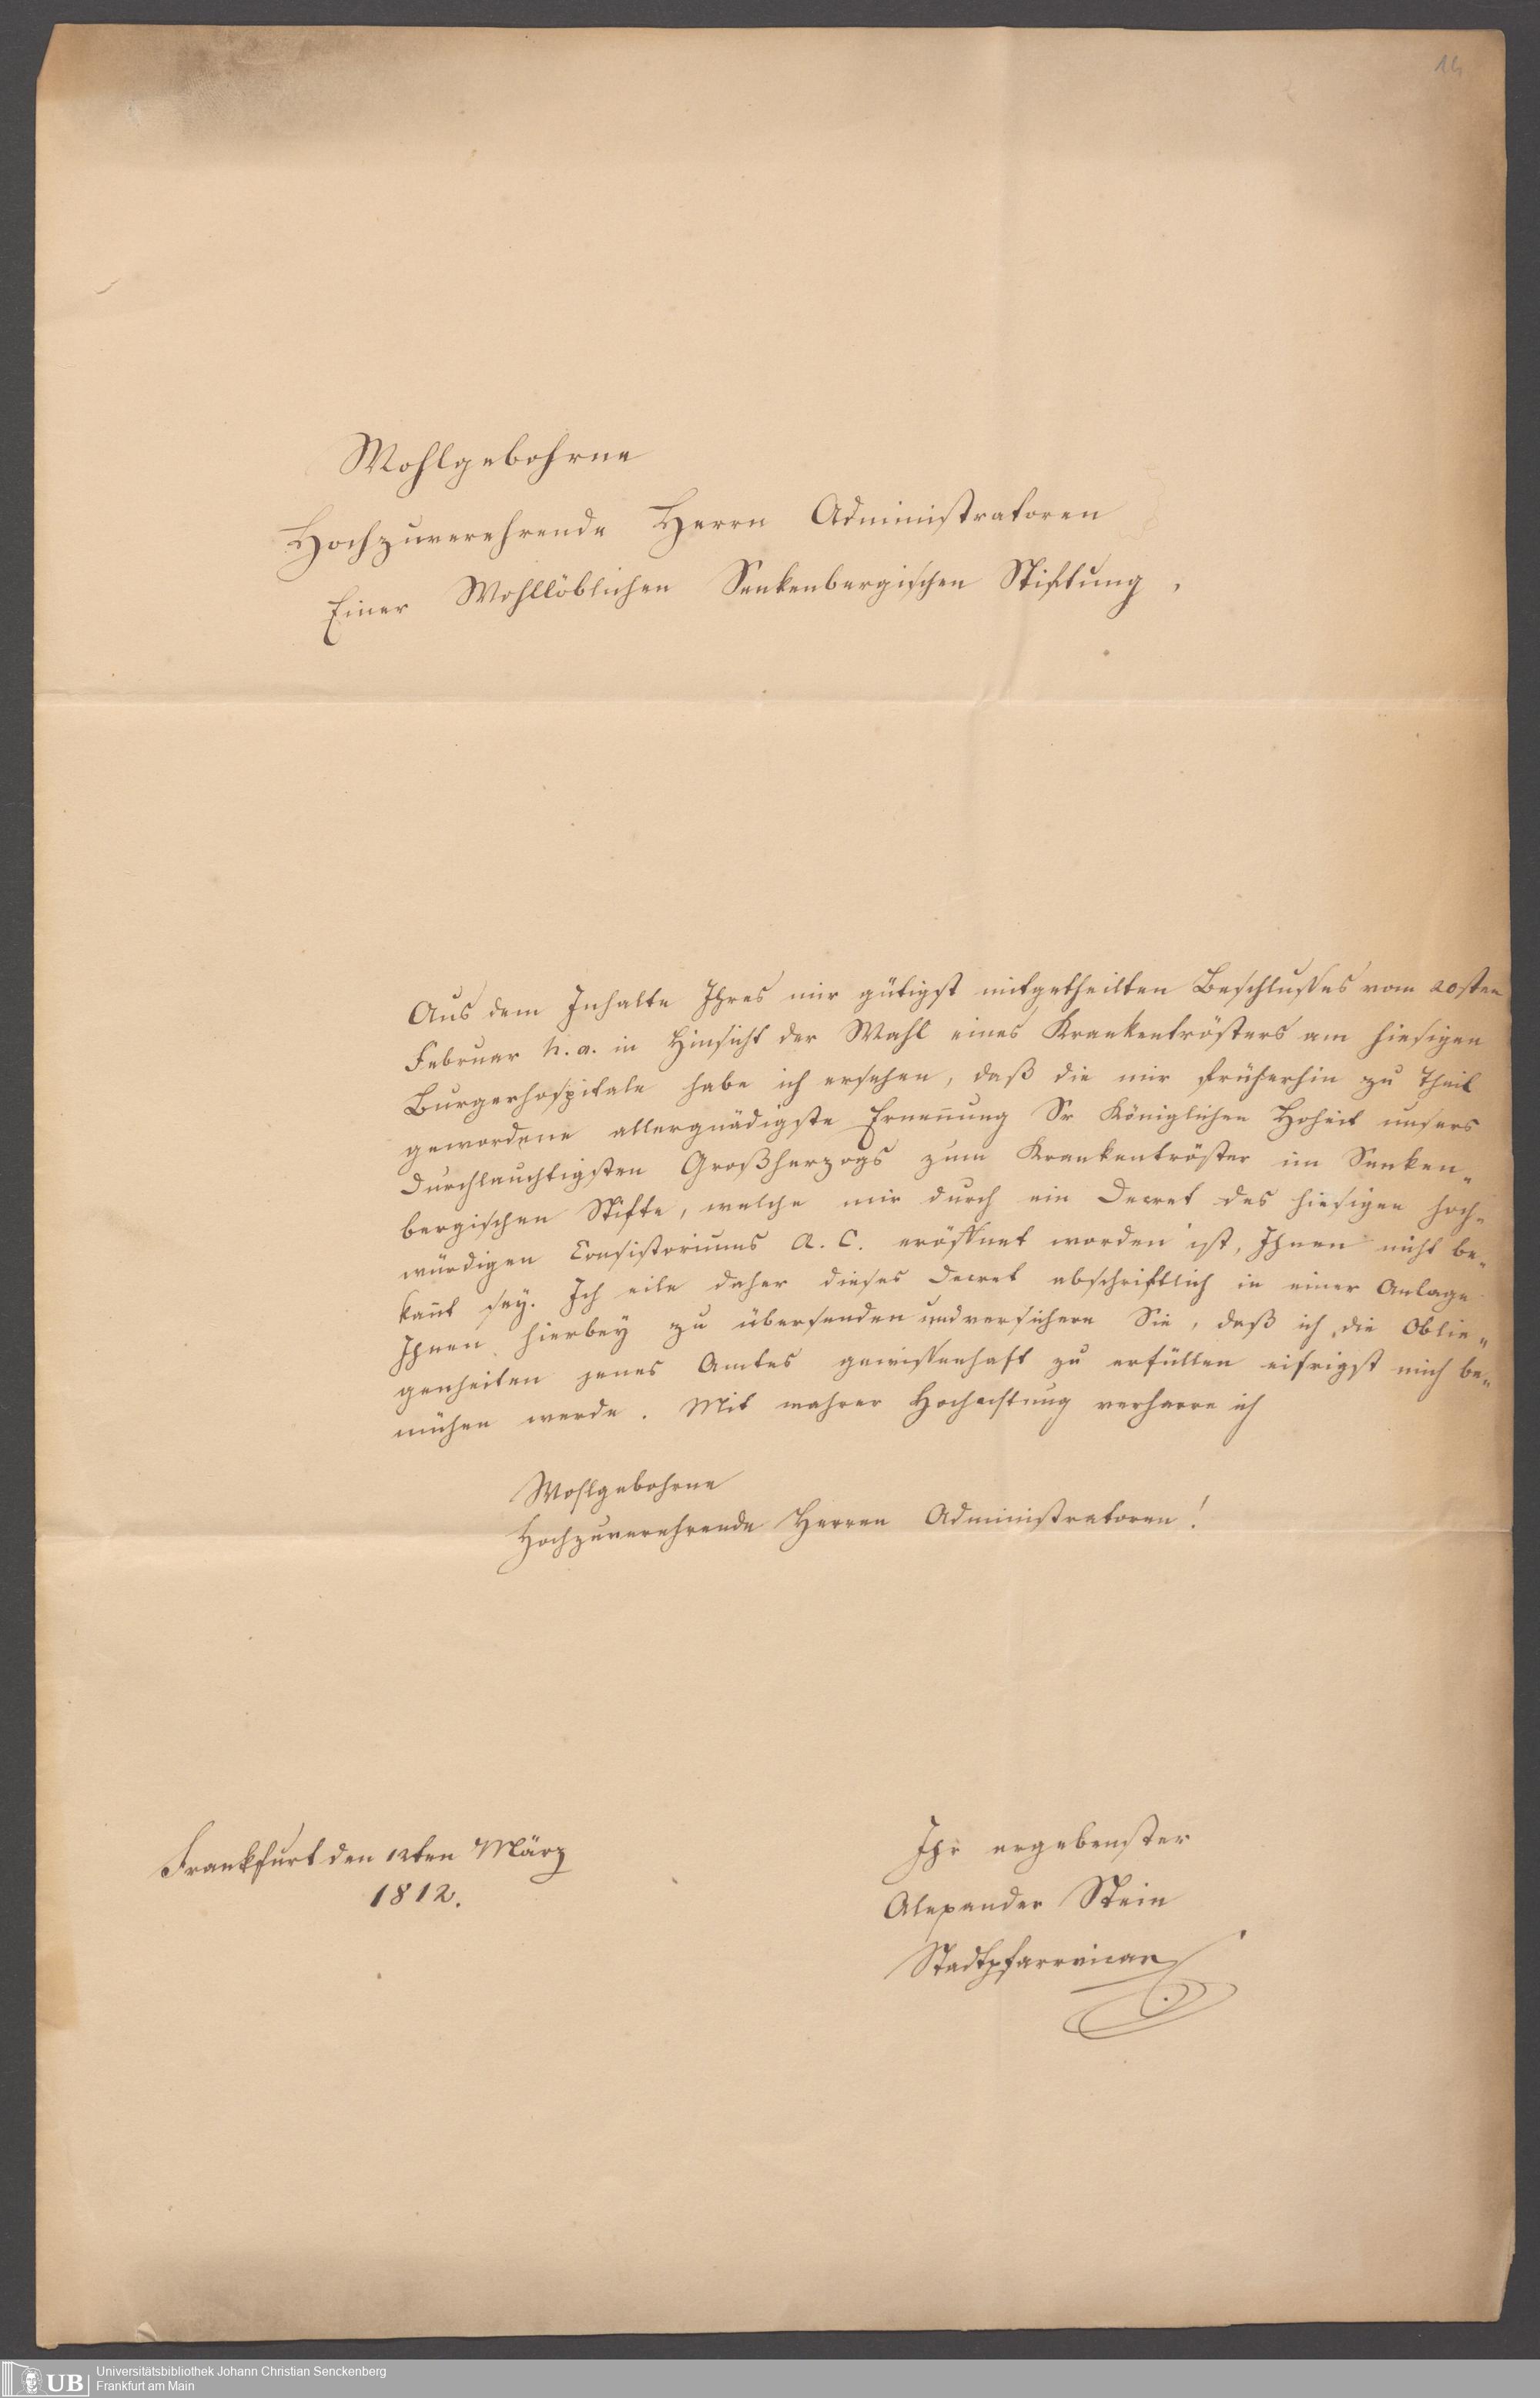 14
Wohlgebohrne
Hochzuverehrende Herrn Administratoren
Einer Wohllöblichen Senkenbergischen Stiftung,
Aus dem Inhalte Ihres mir gütigst mitgetheilten Beschlusses vom 20sten
Februar h. a. in Hinsicht der Wahl eines Krankentrösters am hiesigen
Burgerhospitale habe ich ersehen, daß die mir früherhin zu Theil
gewordene allergnädigste Ernen̄ung Sr Königlichen Hoheit unsers
Durchlauchtigsten Großherzogs zum Krankentröster im Senken„
bergischen Stifte, welche mir durch ein Decret des hiesigen hoch„
würdigen Consistoriums A. C. eröffnet worden ist, Ihnen nicht be„
kan̄t sey. Ich eile daher dieses Decret abschriftlich in einer Anlage
Ihnen hierbey zu übersenden und versichere Sie, daß ich die Oblie„
genheiten jenes Amtes gewissenhaft zu erfüllen eifrigst mich be„
mühen werde. Mit wahrer Hochachtung verharre ich
Wohlgebohrne
Hochzuverehrende Herren Administratoren!
Frankfurt den 12ten März
1812.
Ihr ergebenster
Alexander Stein
Stadtpfarrvicar
UB
Universitätsbibliothek Johann Christian Senckenberg
Frankfurt am Main